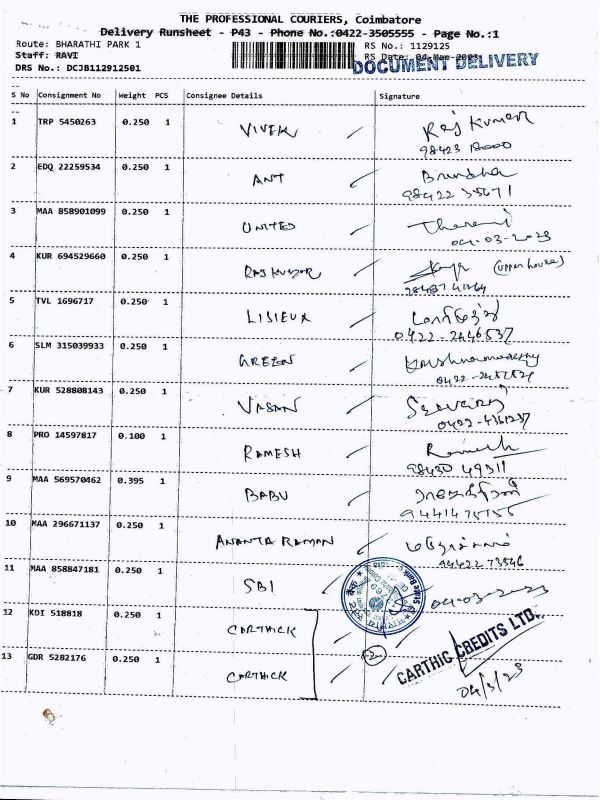 THE PROFESSIONAL COURIERS, Coimbatore
Delivery Runsheet - P43 - Phone No.:0422-3505555 - Page No.:1
Route: BHARATHI PARK 1
RS No.: 1129125
Staff: RAVI
RS Date: 04-Mar-2023
DRS No.: DCJB112912501
DOCUMENT DELIVERY
S No Consignment No Weight PCS Consignee Details Signature
1 TRP 5450263 0.250 1 VIVEK Raj Kumar
2 EDQ 22259534 0.250 1 ANT Brundha
3 MAA 858901099 0.250 1 UNITED
04-03-2023
4 KUR 694529660 0.250 1 RAJKUMAR (upper house)
5 TVL 1696717 0.250 1 LISIEUX
0422-2446537
6 SLM 315039933 0.250 1 GREEN Krishnamoorthy
7 KUR 528808143 0.250 1 VASAN
8 PRO 14597817 0.100 1 RAMESH Ramesh
98430 49311
9 MAA 569570462 0.395 1 BABU
10 MAA 296671137 0.250 1 ANANTA RAMAN
94422 73546
11 MAA 858847181 0.250 1 SBI 04-03-2023
State Bank
12 KDI 518818 0.250 1 CARTHICK
2
CARTHIC CREDITS LTD.
13 GDR 5282176 0.250 1 CARTHICK
04/3/23